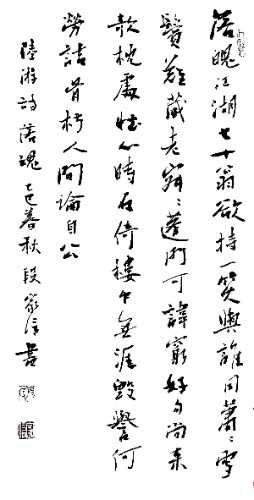 落魄江湖七十翁欲持一笑與誰同蕭蕭雪
鬢難藏老寂寂蓬門可諱窮好句尚来
欹枕處壮心時在倚樓中生涯毀譽何
勞詰骨朽人間論自公
陸游詩落魄 乙巳春秋段家信書